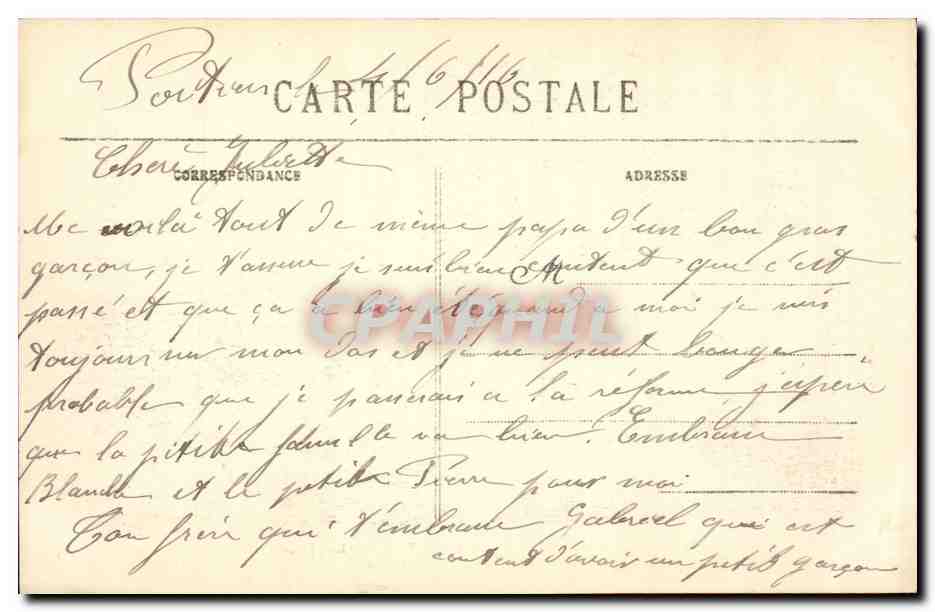 le 4/6/16
CARTE POSTALE
Chere Juliette
CORRESPONDANCE
ADRESSE
Me voilà tout de même papa d'un bon gros
garçon, je t'assure je suis bien content que c'est
passé et que ça a bien été quand a moi je suis
toujours sur mon dos et je ne peut bouger
probable que je passerais a la réforme j'éspère
que la petite famille va bien. Embrasse
Blanche et le petit Pierre pour moi
Ton frère qui t'embrasse Gabriel qui est
content d'avoir un petit garçon
CPAPHIL